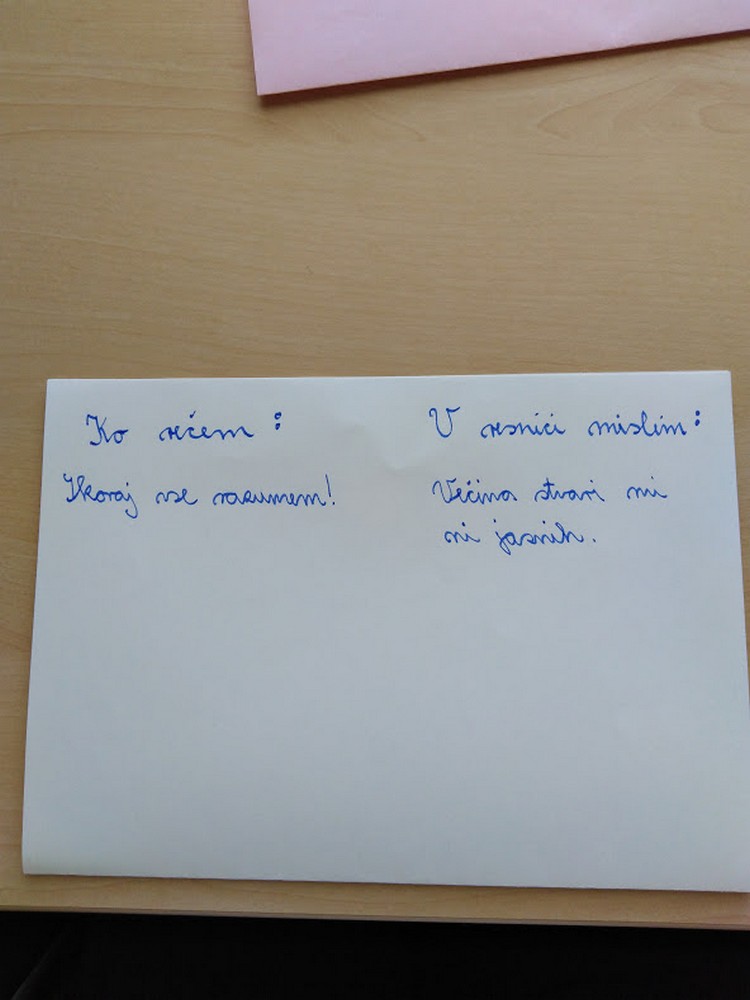 Ko rečem:
Skoraj vse razumem!
V resnici mislim:
Večina stvari mi
ni jasnih.